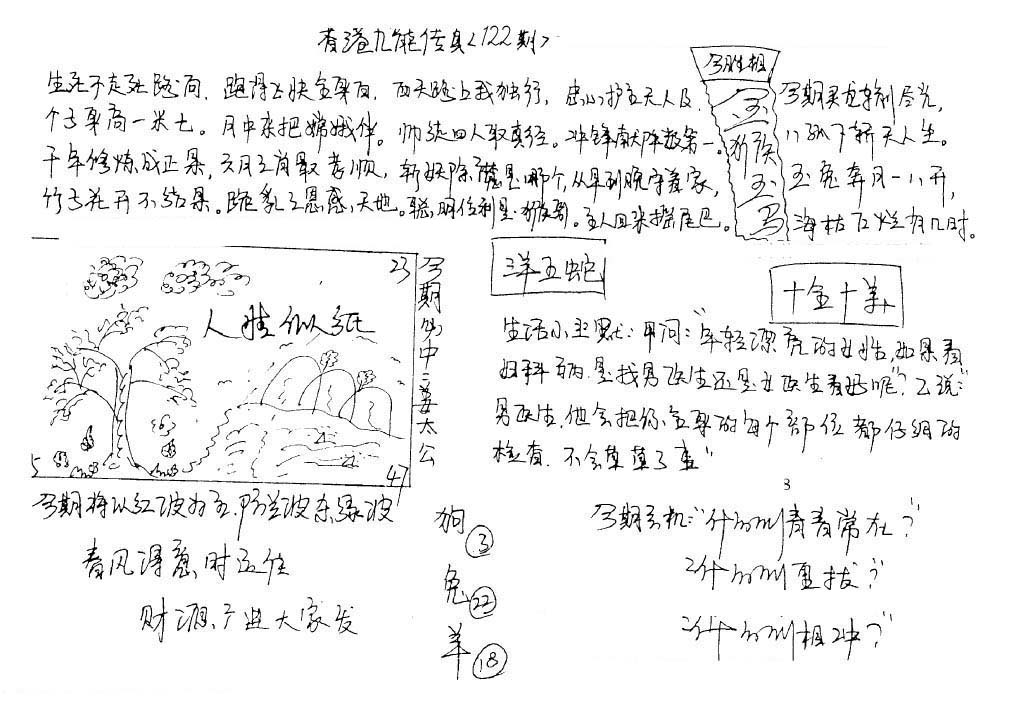 香港九龍传真<122期>
生在不走死路向，跑得飞快全靠白，西天路上我独行，忠心护主无人及，
个子草高一米七。月中亲把嫦娥伴。师徒四人取真经。冲锋献阵数第一。
千年修炼成正果，六月三肖最考顺，斩妖除魔是哪个，从早到晚守着家，
竹子花开不结果。跪乳之恩感天地。聪明伶利是猴哥。主人回来摇尾巴。
今胜相
玉
猴
玉
马
今期灵
尽光，
人生。
玉兔奔月一八开，
海枯石烂有几时。
23
人生似纸
5
47
今期
中三美太公
三羊五蛇
十全十美
生活小幽默：甲问："年轻漂亮的女性，如果看
妇科病，是找男医生还是女医生看好呢"？乙说："
男医生，他会把你全身的每个部位都仔细的
检查，不会草草了事"
今期将以红波为主，防兰波亲绿波
春风得意时运佳
财源广进大家发
狗③
兔㉒
羊⑱
3
今期玄机："什么叫青春常在？"
"什么叫坚拔？"
"什么叫相冲？"